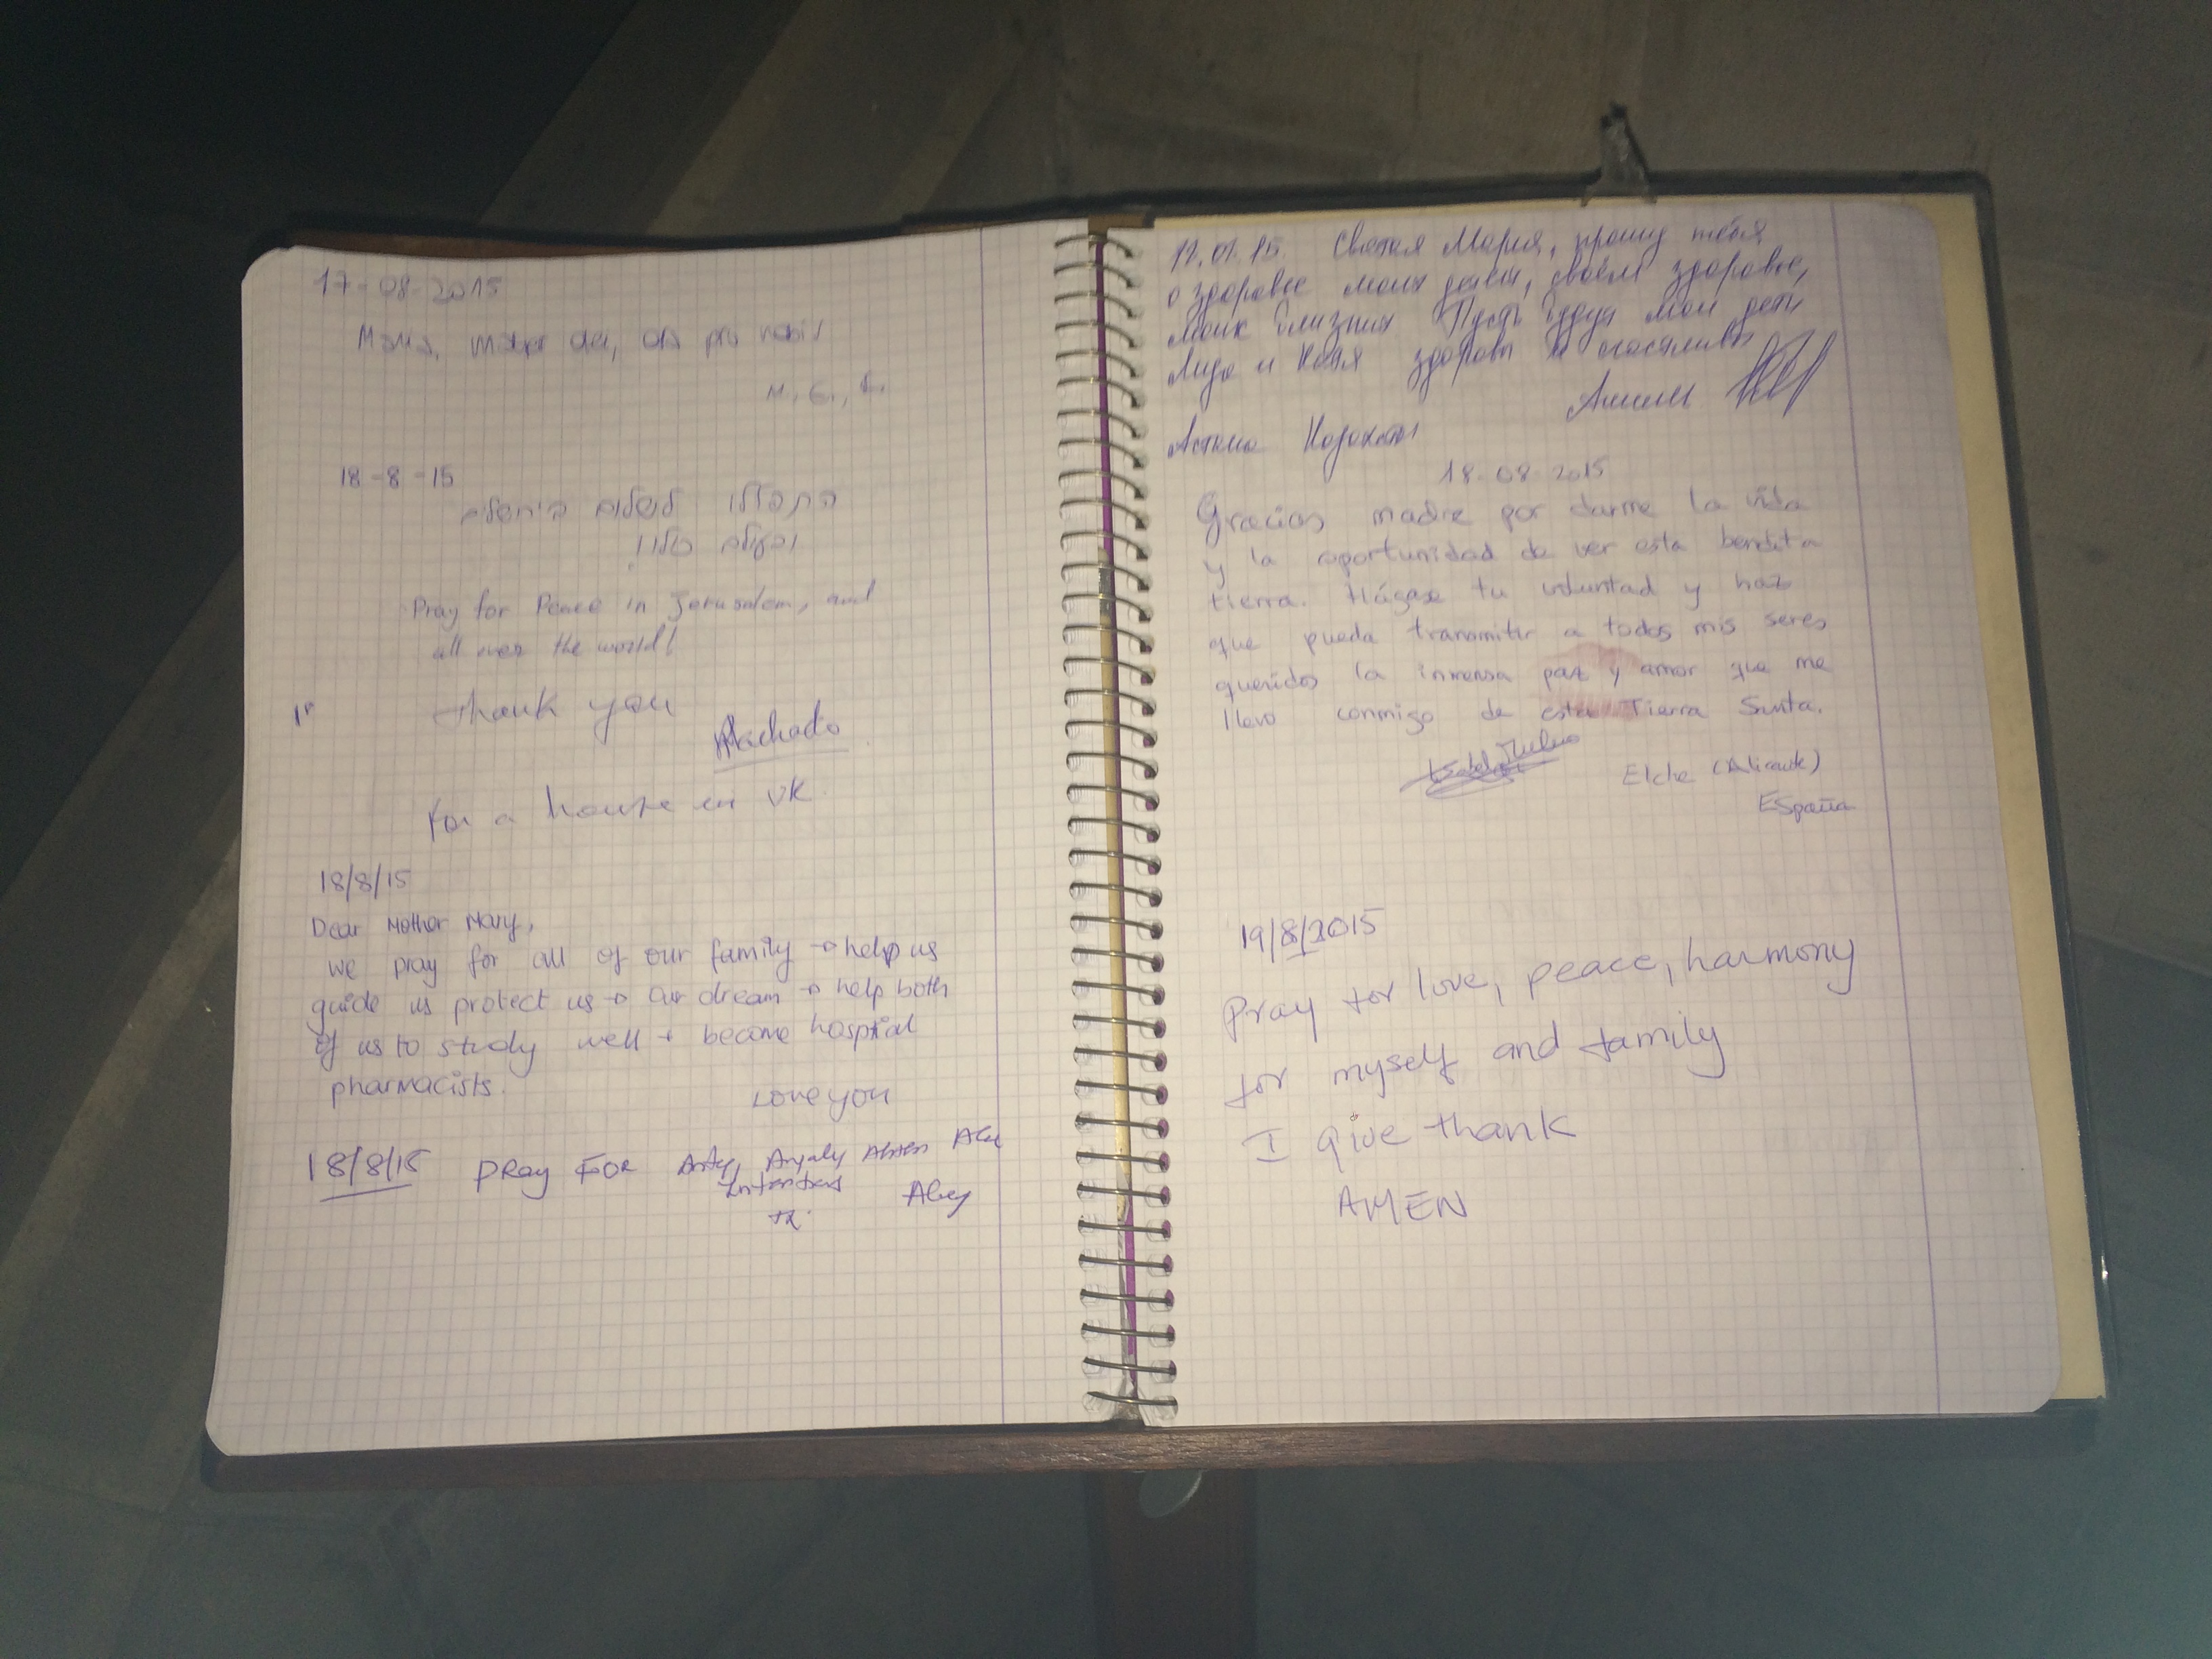 17-08-2015
Maria, mater dei, ora pro nobis!
M. G., L.
18-8-15
התפללו לשלום בירושלים
ובעולם כולו!
Pray for Peace in Jerusalem, and
all over the world!
thank you
Machado
for a house in UK
18/8/15
Dear Mother Mary,
we pray for all of our family → help us
guide us protect us → our dream → help both
of us to study well + become hospital
pharmacists.
Love you
18/8/15 PRay FOR
Intentions
Святая Мария, прошу тебя
о здоровье моих детей, своём здоровье,
моих близких Пусть будут мои дети
Лида и Катя здоровы и счастливы
18-08-2015
Gracias madre por darme la vida
y la oportunidad de ver esta bendita
tierra. Hágase tu voluntad y haz
que pueda transmitir a todos mis seres
queridos la inmensa paz y amor que me
llevo conmigo de esta Tierra Santa.
Elche (Alicante)
España
19/8/2015
Pray for love, peace, harmony
for myself and family
I give thank
AMEN